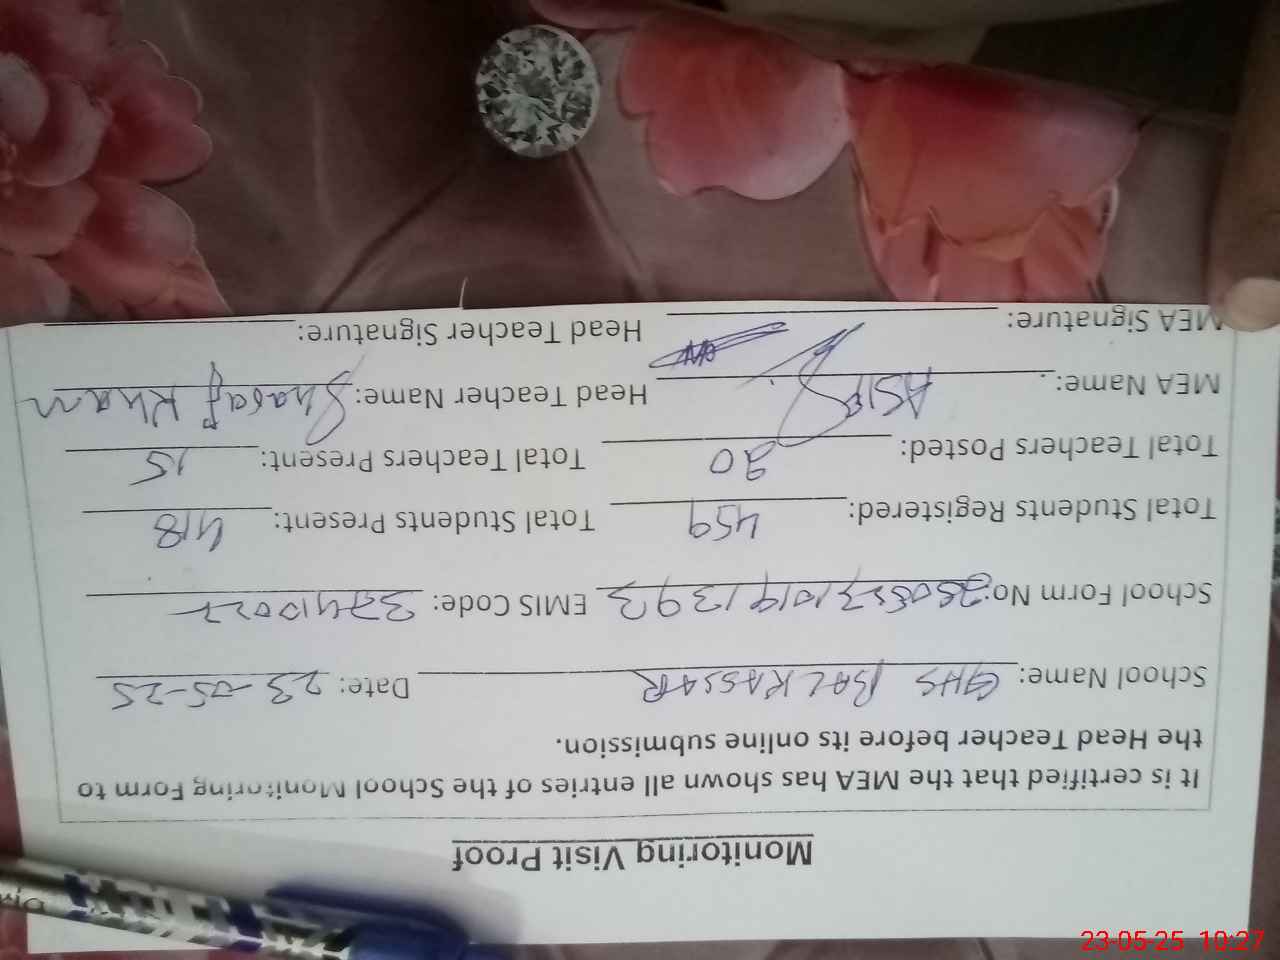 Monitoring Visit Proof
It is certified that the MEA has shown all entries of the School Monitoring Form to
the Head Teacher before its online submission.
School Name: GHS BALKASSAR Date: 23-05-25
School Form No: EMIS Code:
Total Students Registered: 459 Total Students Present: 418
Total Teachers Posted: 20 Total Teachers Present: 15
MEA Name: ASIF Head Teacher Name: Sharaf Khan
MEA Signature: Head Teacher Signature:
23-05-25 10:27